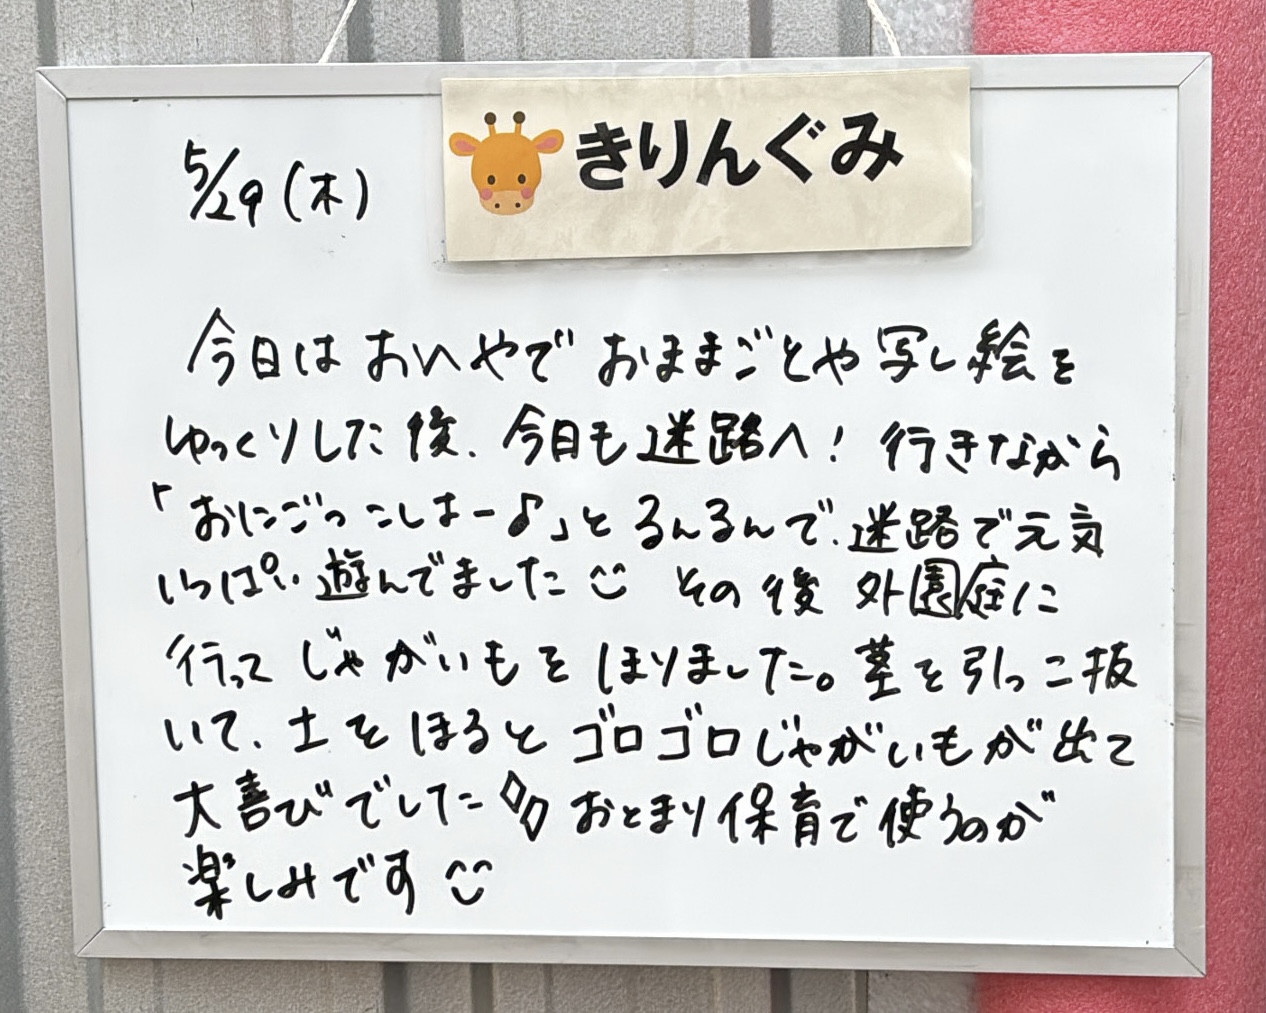 きりんぐみ
5/29(木)
今日は おへやで おままごとや 写し絵を
ゆっくりした後、今日も迷路へ! 行きながら
「おにごっこしよー♪」と るんるんで、迷路で元気
いっぱい 遊んでました☺ その後 外園庭に
行って じゃがいもを ほりました。茎を引っこ抜
いて、土を ほると ゴロゴロじゃがいもが 出て
大喜びでした◇◇ おとまり保育で 使うのが
楽しみです☺